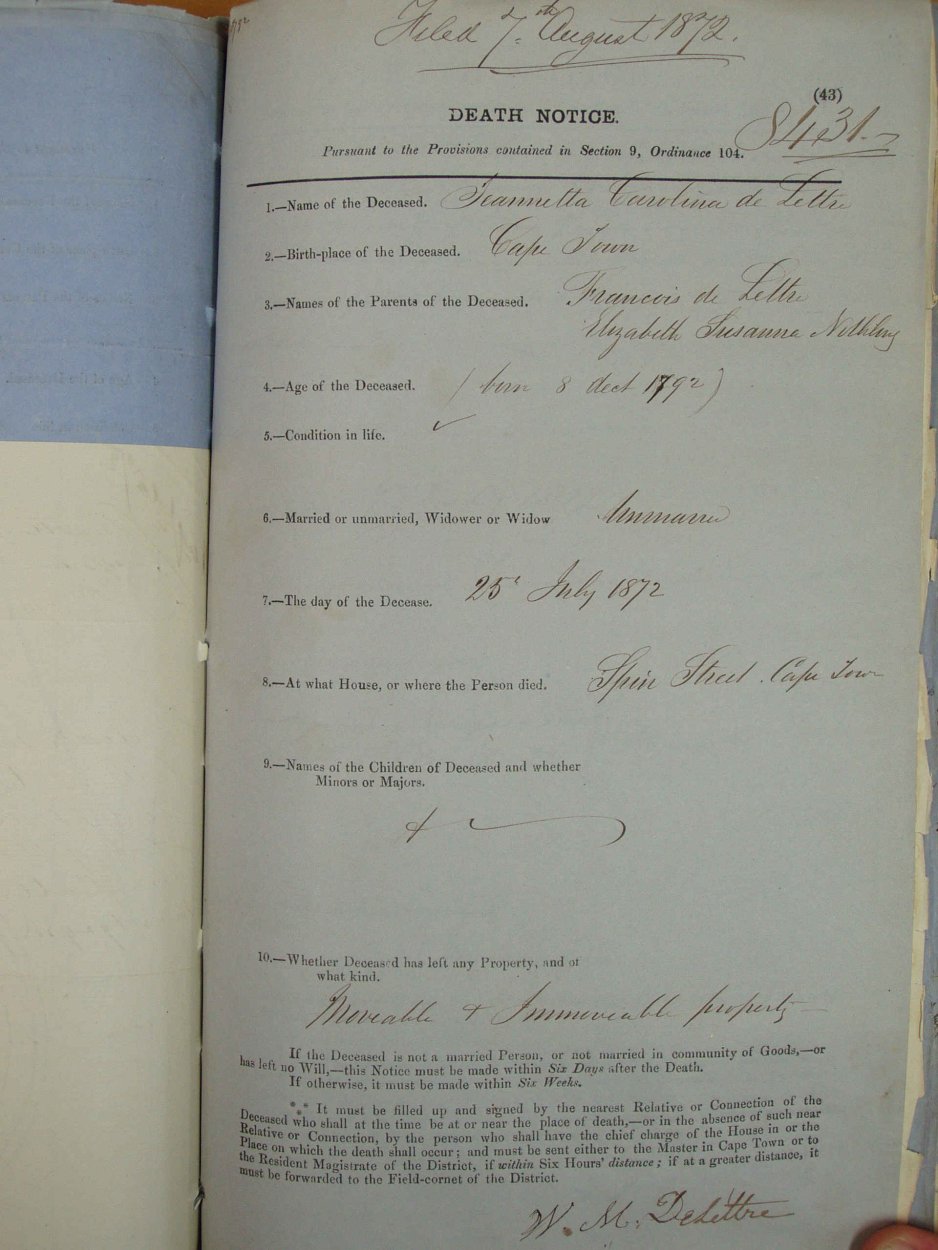 Filed 7th August 1872.
(43)
DEATH NOTICE.
8431.
Pursuant to the Provisions contained in Section 9, Ordinance 104.
1.—Name of the Deceased. Jeannetta Carolina de Lettre
2.—Birth-place of the Deceased. Cape Town
3.—Names of the Parents of the Deceased. Francois de Lettre
Elizabeth Susanna Nothling
4.—Age of the Deceased. (born 8 dect 1792)
5.—Condition in life.
6.—Married or unmarried, Widower or Widow Unmarried
7.—The day of the Decease. 25t July 1872
8.—At what House, or where the Person died. Spin Street. Cape Town
9.—Names of the Children of Deceased and whether
Minors or Majors.
10.—Whether Deceased has left any Property, and of
what kind.
Moveable & Immoveable property
If the Deceased is not a married Person, or not married in community of Goods,—or
has left no Will,—this Notice must be made within Six Days after the Death.
If otherwise, it must be made within Six Weeks.
*** It must be filled up and signed by the nearest Relative or Connection of the
Deceased who shall at the time be at or near the place of death,—or in the absence of such near
Relative or Connection, by the person who shall have the chief charge of the House in or the
Place on which the death shall occur; and must be sent either to the Master in Cape Town or to
the Resident Magistrate of the District, if within Six Hours' distance; if at a greater distance, it
must be forwarded to the Field-cornet of the District.
W. M. DeLettre